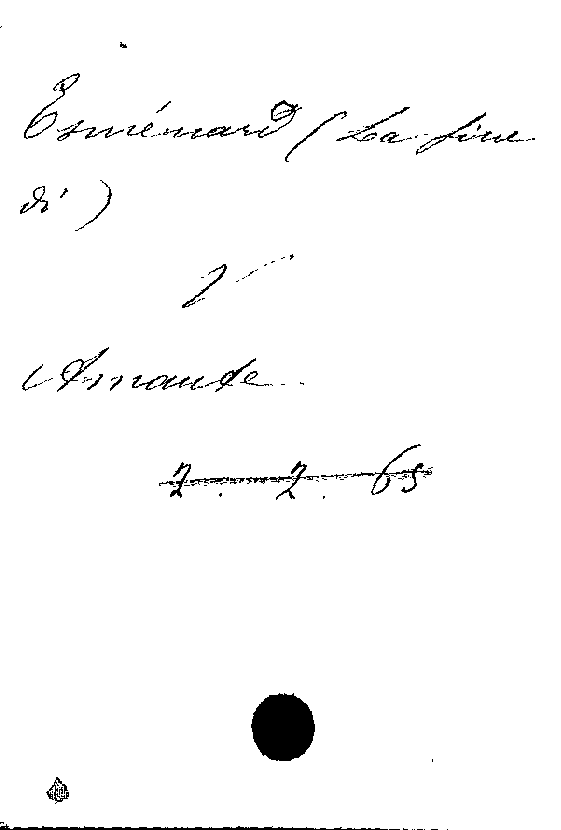 Esménard (La fine
di)
V
Amante.
2. 2. 65